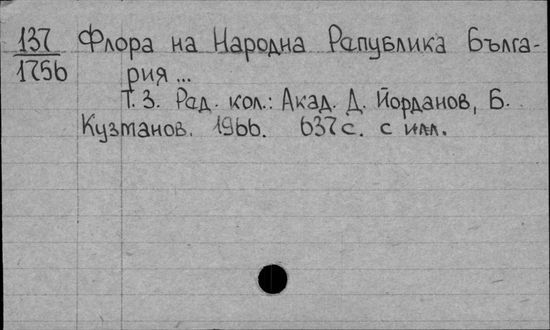 137 Флора на Народна Рапублика Бълга-
175б рия...
Т. 3. Рад. кол.: Акад. Д. Йорданов, Б.
Кузманов. 1966. 637с. с илл.